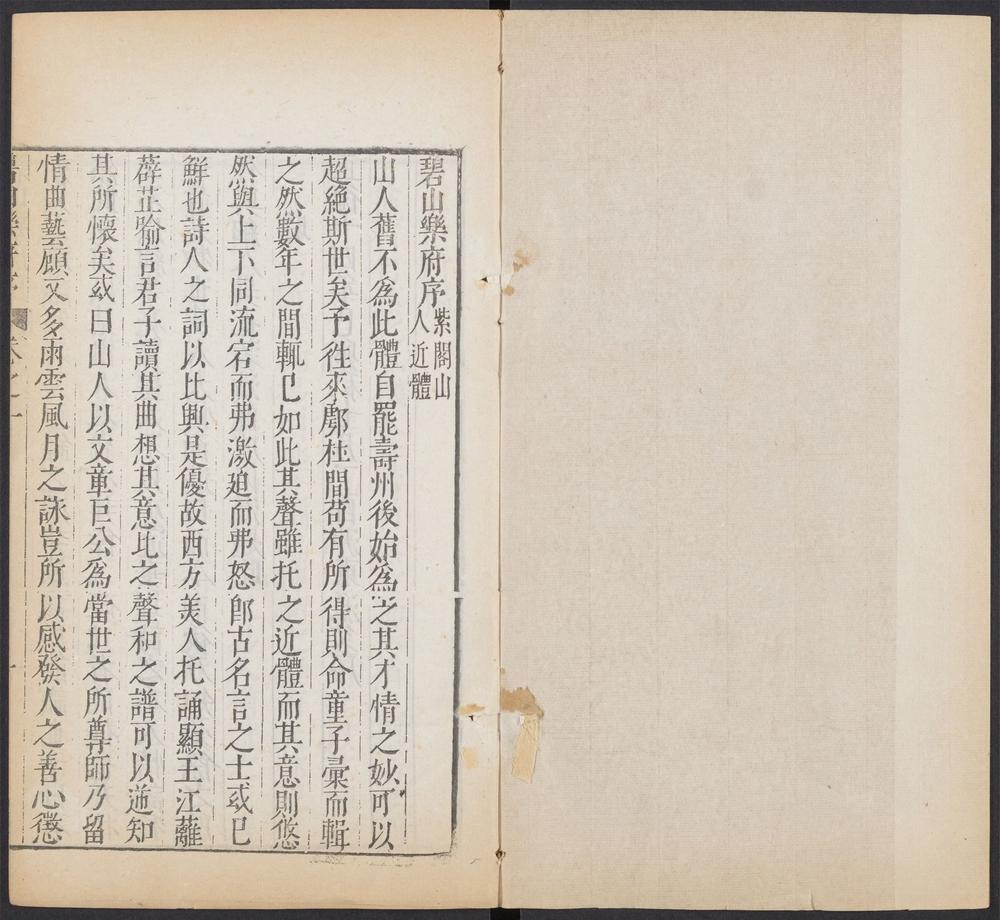 碧山樂府序 紫閣山人近體
山人舊不為此體自罷壽州後始為之其才情之妙可以
超絕斯世矣予徃來鄠杜間苟有所得則命童子彚而輯
之然數年之間輒已如此其聲雖托之近體而其意則悠
然與上下同流宕而弗激廹而弗怒即古名言之士或已
鮮也詩人之詞以比興是優故西方美人托誦顯王江蘺
薜芷喻言君子讀其曲想其意比之聲和之譜可以逆知
其所懷矣或曰山人以文章巨公為當世之所尊師乃留
情曲藝顧又多雨雲風月之詠豈所以感發人之善心懲
碧山樂府序 卷之一 一